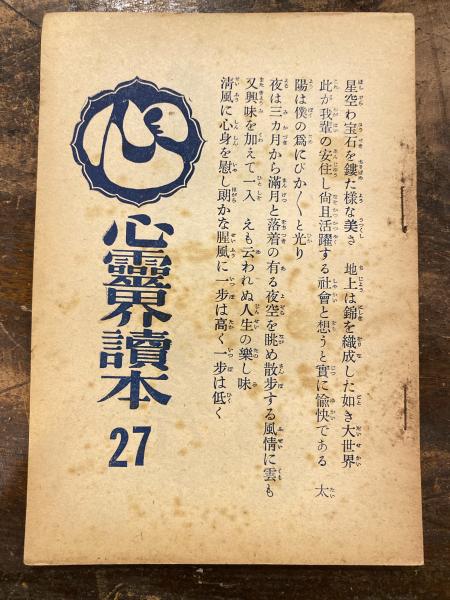 星空わ宝石を鏤た様な美さ　地上は錦を織成した如き大世界
此が我輩の安住し尙且活躍する社會と想うと實に愉快である　太
陽は僕の爲にぴか〱と光り
夜は三カ月から滿月と落着の有る夜空を眺め散步する風情に雲も
又興味を加えて一入　えも云われぬ人生の樂し味
淸風に心身を慰し朗かな腥風に一步は高く一步は低く
心
心靈界讀本
27